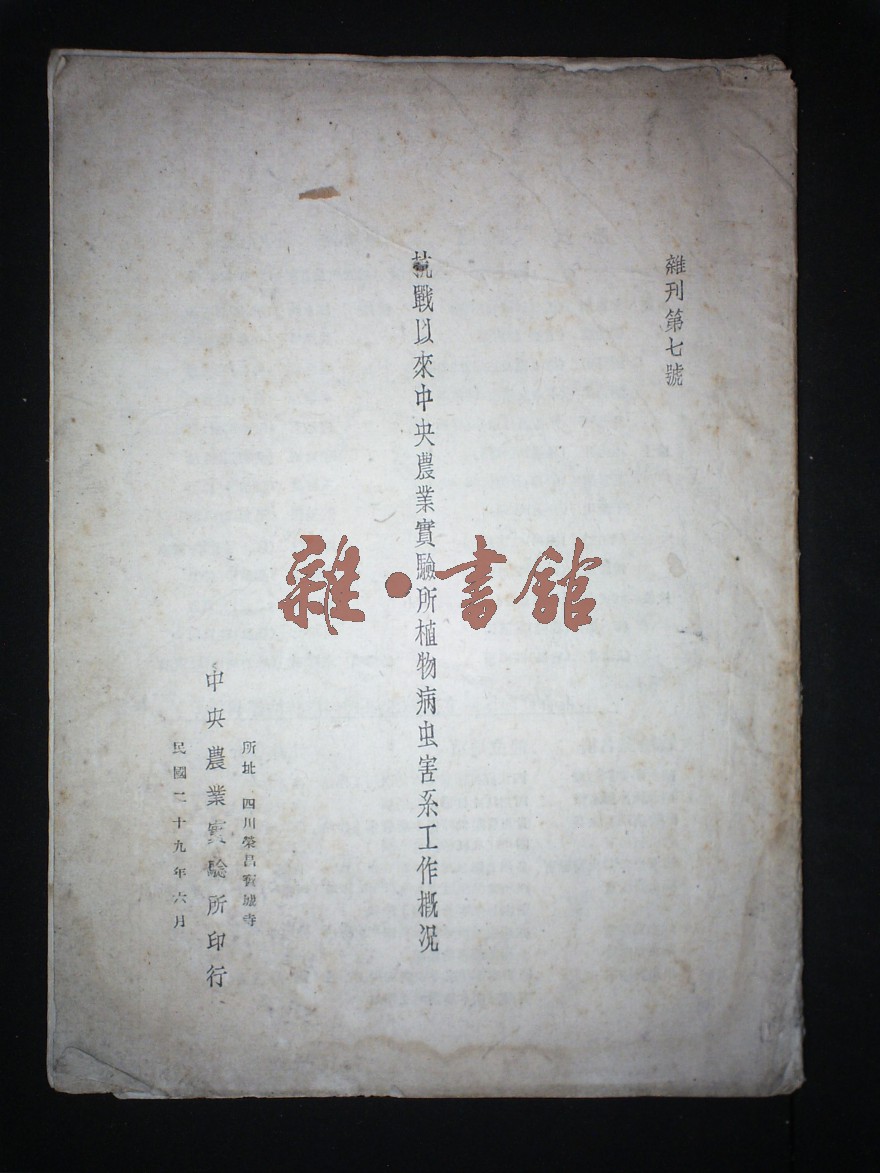 雜刊第七號
抗戰以來中央農業實驗所植物病虫害系工作概况
所址 四川榮昌寶城寺
中央農業實驗所印行
民國二十九年六月
雜·書館